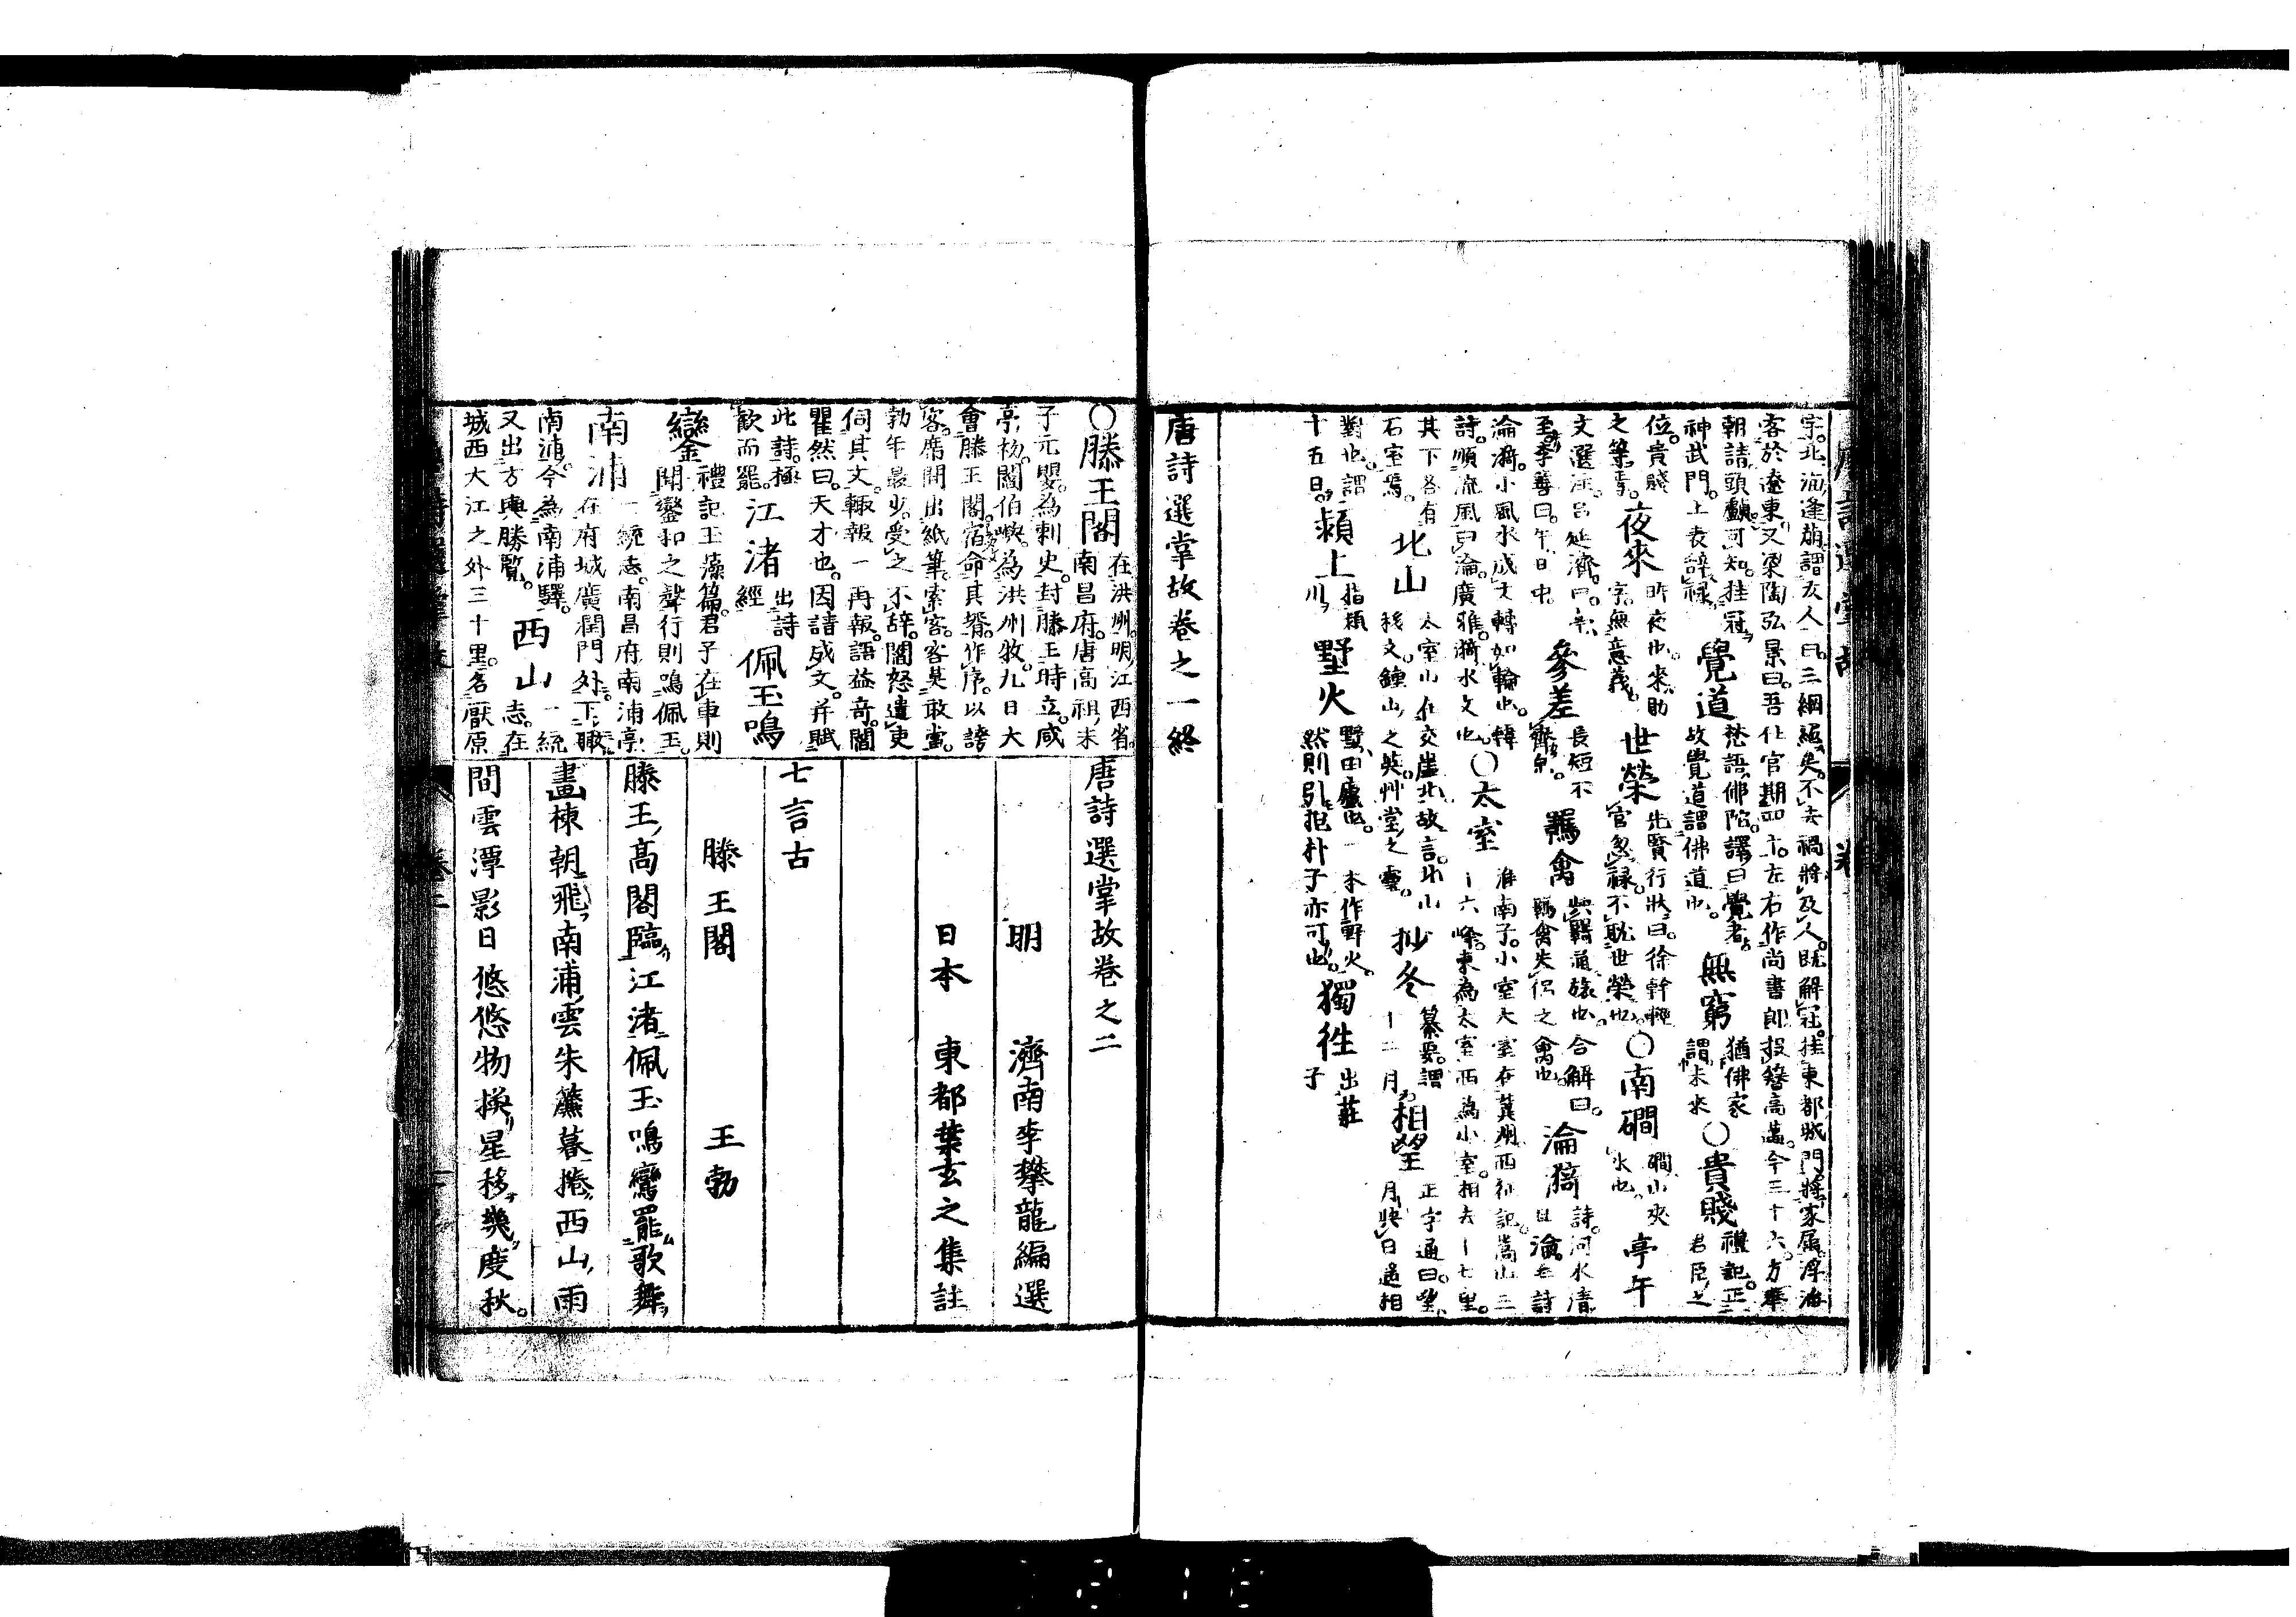 宗。北海逢萠謂友人曰。三綱絕矣。不去禍將及人。既解冠。挂東都城門。將家屬。浮海
客於遼東。又梁陶弘景曰。吾仕官期四十。左右作尚書郎。投簪高邁。今三十六。方奉
朝請。頭顱可知。挂冠
神武門。上表辭祿。
覺道
梵語。佛陀。譯曰覺者。
故覺道謂佛道也。
無窮
猶佛家
謂未來
○貴賤
禮記。正
君臣之
位。貴賤
之等焉。
夜來
昨夜也。來。助
字。無意義。
世榮
先賢行狀曰。徐幹輕
官忽祿。不耽世榮也。
○南磵
磵。山夾
水也。
亭午
文選注。呂延濟曰。亭。
至。李善曰。午。日中。
參差
長短不
齊皃。
羈禽
與羇通。旅也。合解曰。
羈禽失侶之禽也。
淪漪
詩。河水清
且淪。毛詩
淪漪。小風水成文轉如輪也。韓
詩。順流風曰淪。廣雅。漪水文也。
○太室
淮南子。小室大室在冀州。西征記。嵩山三
十六峰。東為太室。西為小室。相去十七里。
其下各有
石室焉。
北山
太室山在交崖北。故言北山
移文。鍾山之英。艸堂之靈。
抄冬
纂要。謂
十二月。
相望
正字通曰。望。
月與日遙相
對也。謂
十五日。
潁上
指潁
川。
墅火
墅。田廬也。一本作野火。
然則引抱朴子亦可也。
獨徃
出莊
子
唐詩選掌故卷之一終
唐詩選掌故卷之二
明　濟南李攀龍編選
日本　東都葉玄之集註
七言古
滕王閣　王勃
滕王高閣臨江渚佩玉鳴鸞罷歌舞
畫棟朝飛南浦雲朱簾暮捲西山雨
間雲潭影日悠悠物換星移幾度秋。
○滕王閣
在洪州。明江西省。
南昌府。唐高祖末
子元嬰。為刺史。封滕王時立。咸
亭初。閻伯嶼。為洪州牧。九日大
會滕王閣。宿命其婿。作序。以誇
客。席間出紙筆。索客。客莫敢當。
勃年最少。受之不辭。閻怒遣吏
伺其文。輙報一再報。語益奇。閻
瞿然曰。天才也。因請成文。并賦
此詩。極
歡而罷。
江渚
出詩
經
佩玉鳴
鑾
禮記玉藻篇。君子在車則
聞鑾和之聲行則鳴佩玉。
南浦
一統志。南昌府南浦亭
在府城廣潤門外。下瞰
南浦。今為南浦驛。
又出方輿勝覧。
西山
一統
志。在
城西大江之外三十里。名厭原